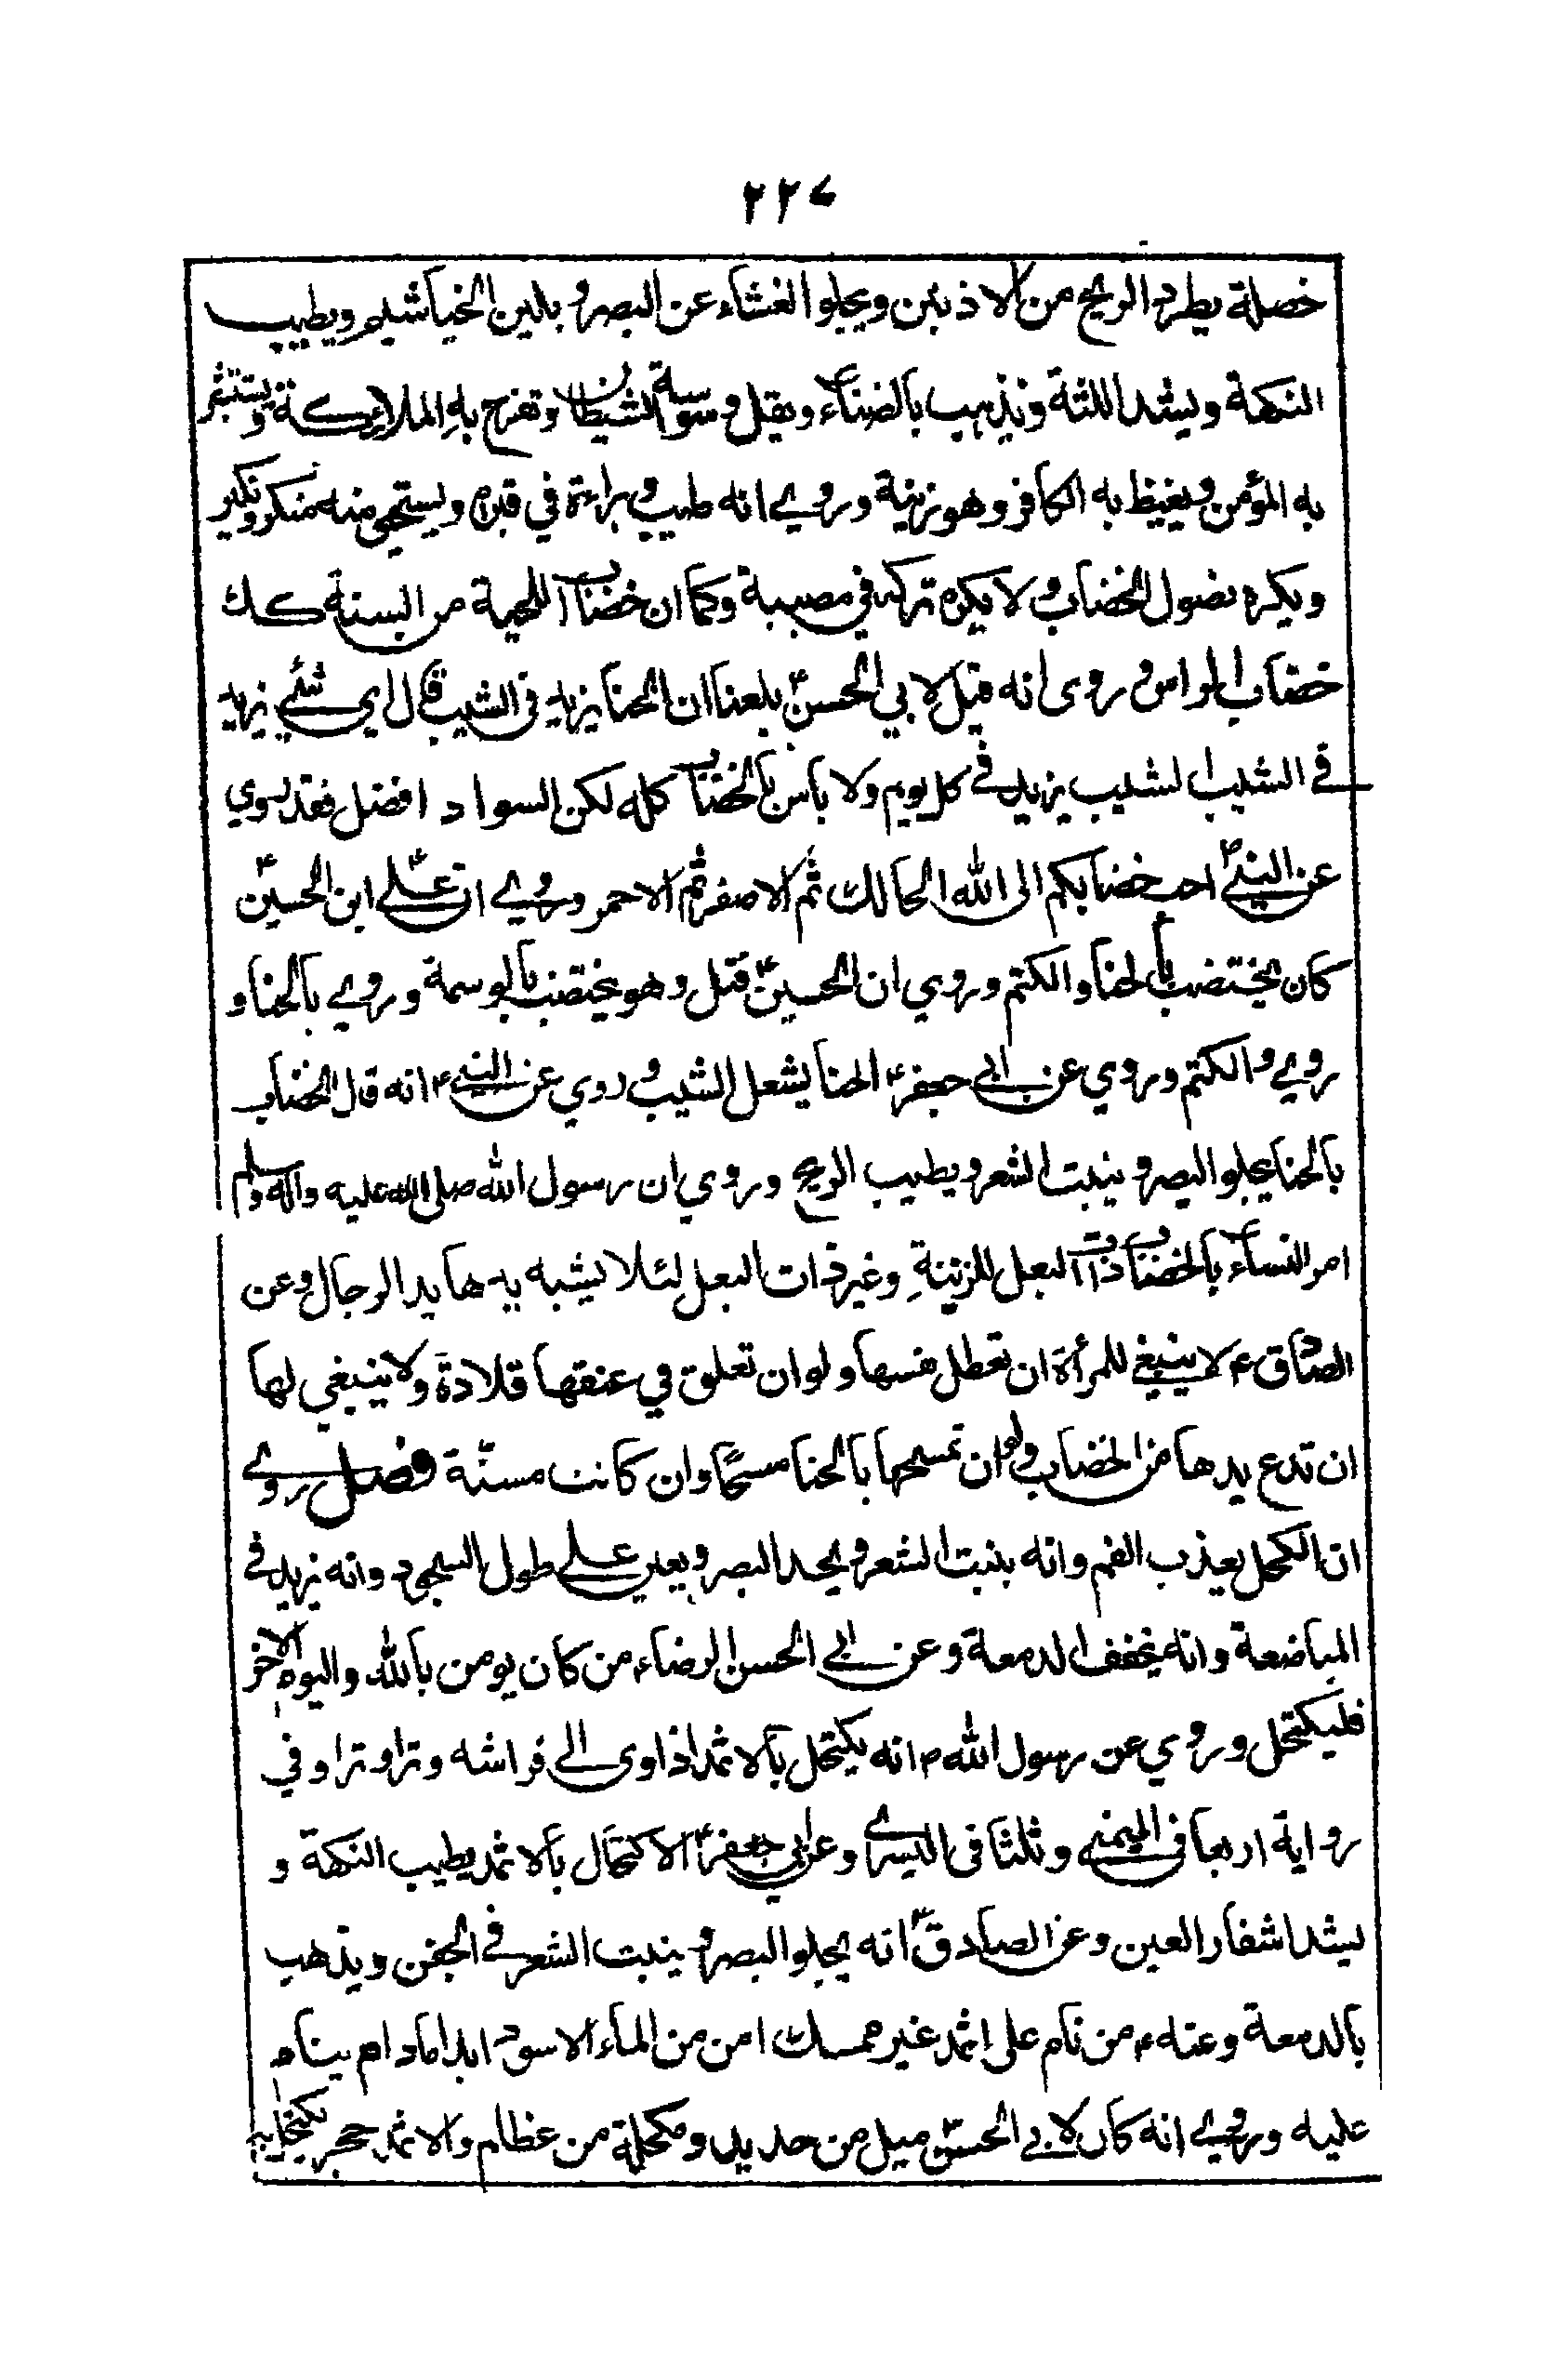 ٢٢٧
خصلة يطرد الريح من الاذنين ويجلو الغشاء عن البصر و يلين الخياشيم ويطيب
النكهة ويشد اللثة ويذهب بالضناء ويقل وسوسة الشيطان وتفرح به الملائكة ويستبشر
به المؤمن ويغيظ به الكافر وهو زينة وروي انه طيب وبراءة في قبره ويستحيي منه منكر ونكير
ويكره نصول الخضاب ولا يكره تركه في مصيبة وكما ان خضاب اللحية من السنة كك
خضاب الراس وروى انه قيل لابي الحسن ع بلغنا ان الحنا يزيد في الشيب قال اي شئي يزيد
في الشيب الشيب يزيد في كل يوم ولا باس بالخضاب كله لكن السواد افضل فقد روي
عن النبي ص احب خضابكم الى الله الحالك ثم الاصفر ثم الاحمر وروي ان علي ابن الحسين ع
كان يختضب بالحنا والكتم وروي ان الحسين ع قتل وهو مختضب بالوسمة وروي بالحنا و
روي والكتم وروي عن ابي جعفر ع الحنا يشعل الشيب و روي عن النبي ص انه قال الخضاب
بالحنا يجلو البصر و ينبت الشعر ويطيب الريح وروي ان رسول الله صلى الله عليه واله وسلم
امر النساء بالخضاب ذات البعل للزينة وغير ذات البعل لئلا يشبه يدها يد الرجال وعن
الصادق ع لا ينبغي للمرأة ان تعطل نفسها ولو ان تعلق في عنقها قلادة ولا ينبغي لها
ان تدع يدها من الخضاب ولو ان تمسحها بالحنا مسحًا وان كانت مسنّة فصل روي
ان الكحل يعذب الفم وانه ينبت الشعر و يحد البصر و يعين علي طول السجود وانه يزيد في
المباضعة وانه يخفف الدمعة وعن ابي الحسن الرضاء من كان يومن بالله واليوم الاخر
فليكتحل وروي عن رسول الله ص انه يكتحل بالاثمد اذا اوى الي فراشه وترا وترا وفي
رواية اربعا في اليمني وثلثا في اليسري وعن ابي جعفر ع الاكتحال بالاثمد يطيب النكهة و
يشد اشفار العين وعن الصادق ع انه يجلو البصر و ينبت الشعر في الجفن ويذهب
بالدمعة وعنه ع من نام على اثمد غير ممسك امن من الماء الاسود ابدا ما دام ينام
عليه وروي انه كان لابي الحسن ع ميل من حديد ومكحلة من عظام والاثمد حجر يكتحل به